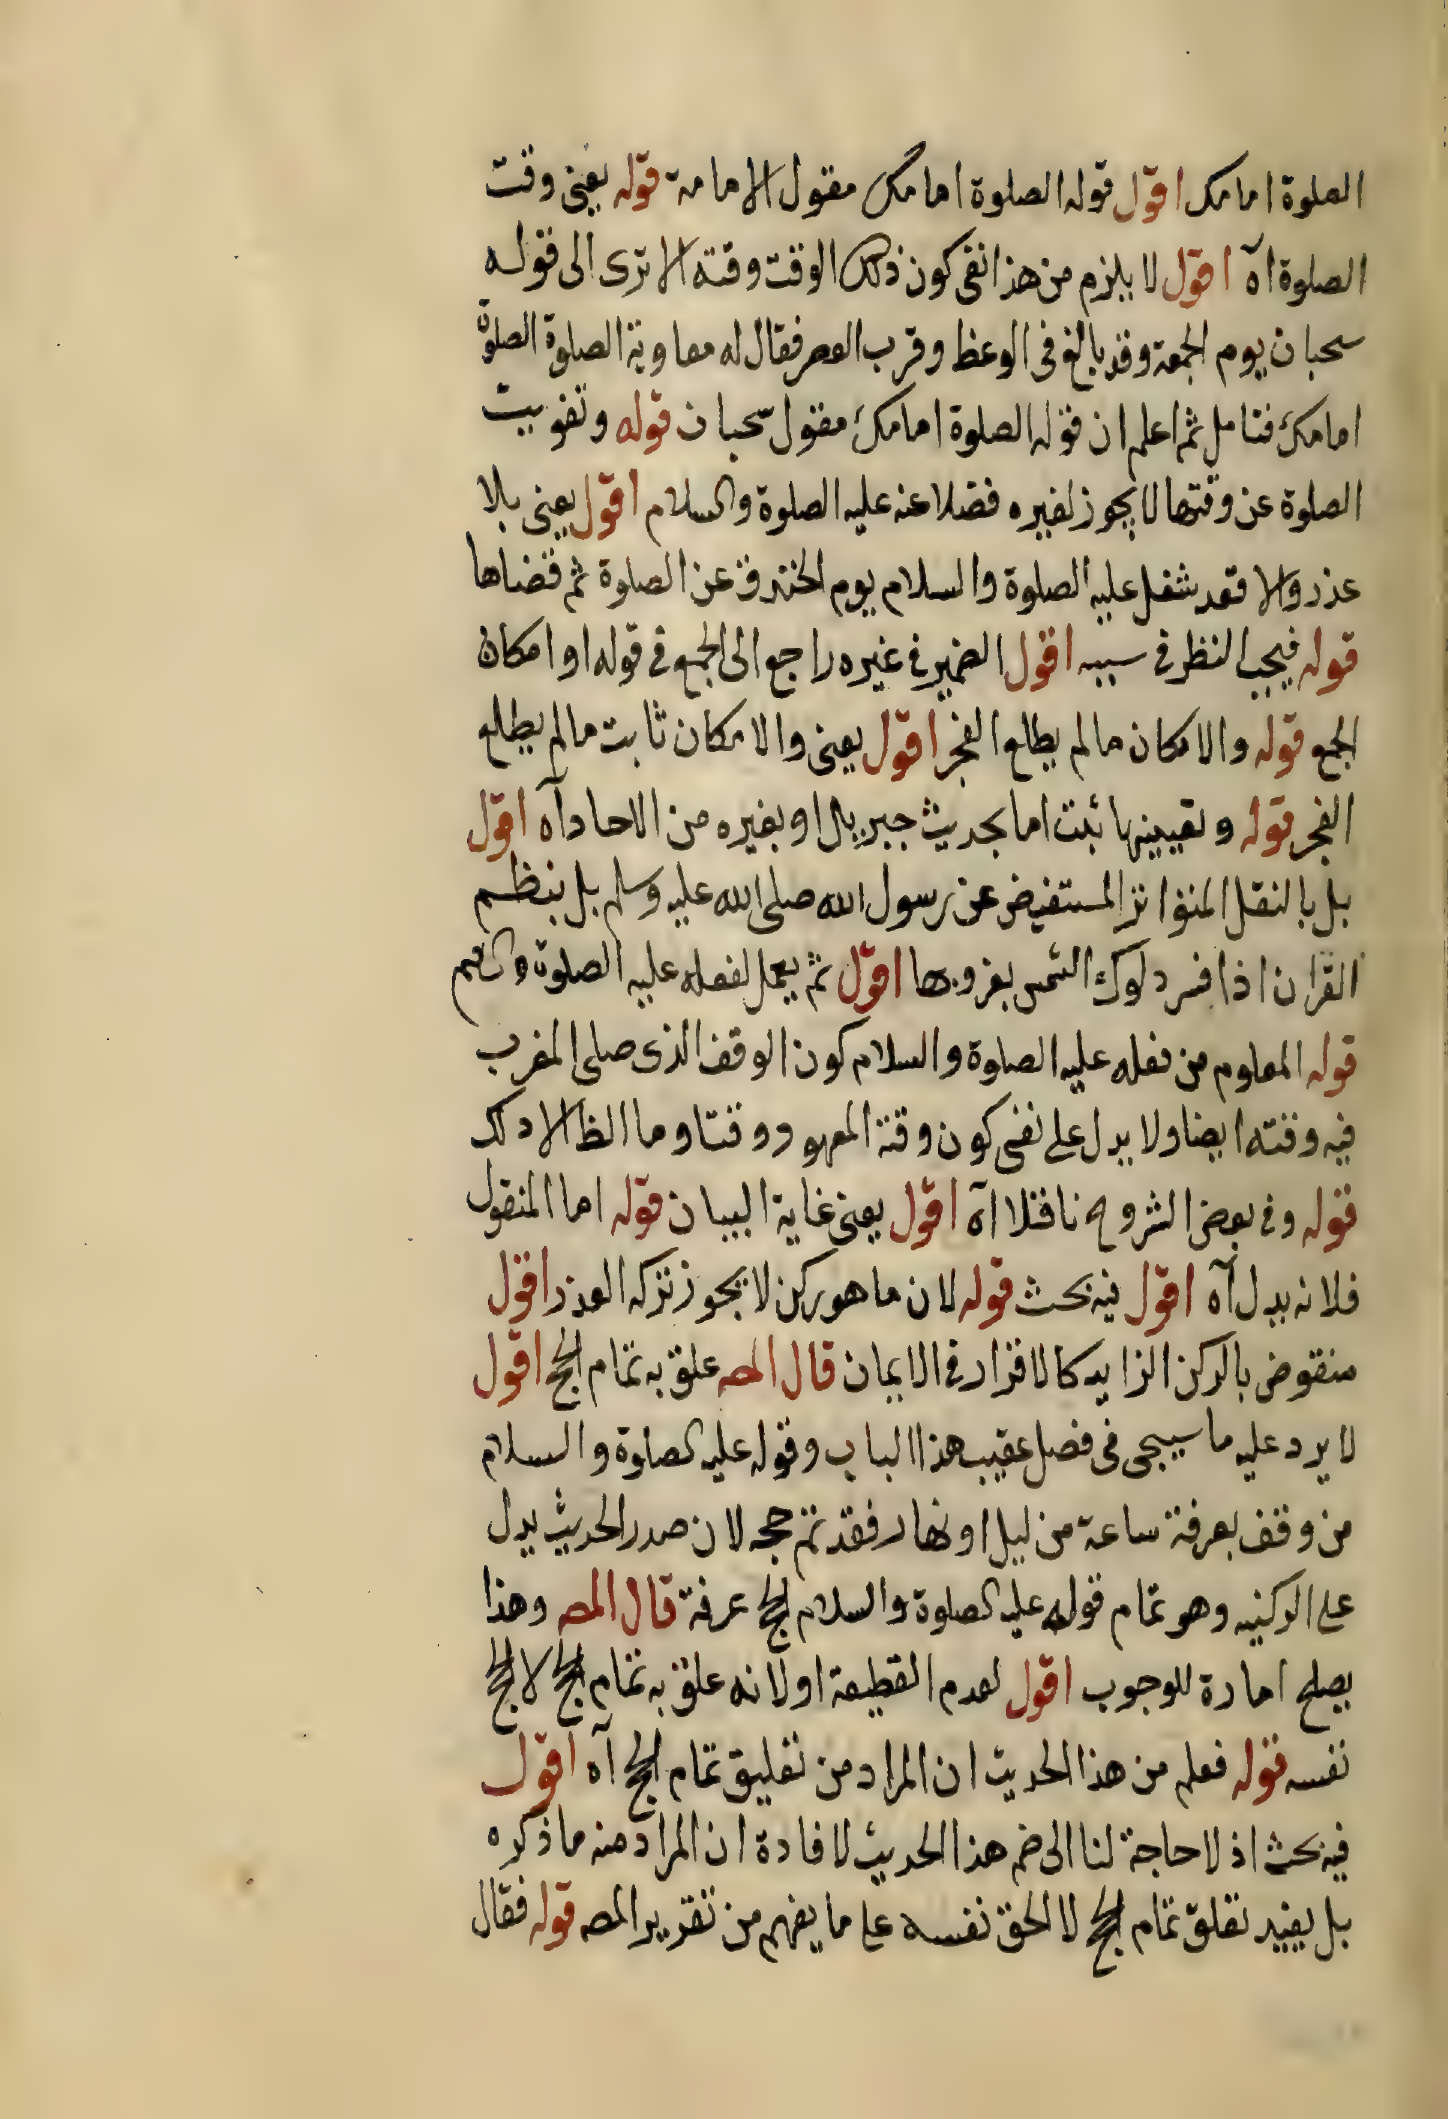 الصلوة امامك اقول قوله الصلوة امامك مقول لاسامة قوله يعنى وقت
الصلوة آه اقول لا يلزم من هذا نفى كون ذلك الوقت وقته الا ترى الى قوله
سحبان يوم الجمعة وقد بالغ فى الوعظ وقرب العصر فقال له معاوية الصلوة الصلوة
امامك فتامل ثم اعلم ان قوله الصلوة امامك مقول سحبان قوله وتفويت
الصلوة عن وقتها لا يجوز لغيره فضلا عنه عليه الصلوة والسلام اقول يعنى بلا
عذر والا فقد شغل عليه الصلوة والسلام يوم الخندق عن الصلوة ثم قضاها
قوله فيجب النظر فى سببه اقول الضمير فى غيره راجع الى الجمع فى قوله او امكان
الجمع قوله والامكان مالم يطلع الفجر اقول يعنى والامكان ثابت مالم يطلع
الفجر قوله وتعيينها ثبت اما بحديث جبريل او بغيره من الاحاد آه اقول
بل بالنقل المتواتر المستفيض عن رسول الله صلى الله عليه وسلم بل بنظم
القران اذا فسر دلوك الشمس بغروبها اقول ثم يعمل لفعله عليه الصلوة
قوله المعلوم من فعله عليه الصلوة والسلام كون الوقت الذى صلى المغرب
فيه وقته ايضا ولا يدل على نفى كون وقتة المعهود وقتا وما الظ الا ذلك
قوله وفى بعض الشروح ناقلا آه اقول يعنى غاية البيان قوله اما المنقول
فلانه بدل آه اقول فيه بحث قوله لان ما هو ركن لا يجوز تركه العذر اقول
منقوض بالركن الزايد كالاقرار فى الايمان قال المصـ علق به تمام الحج اقول
لا يرد عليه ما سيجى فى فصل عقيب هذا الباب وقوله عليه الصلوة والسلام
من وقف بعرفة ساعة من ليل او نهار فقد تم حجه لان صدر الحديث يدل
على الركنيه وهو تمام قوله عليه الصلوة والسلام الحج عرفة قال المصـ وهذا
يصلح امارة للوجوب اقول لعدم القطيعة او لانه علق به تمام الحج لا الحج
نفسه قوله فعلم من هذا الحديث ان المراد من تعليق تمام الحج آه اقول
فيه بحث اذ لا حاجة لنا الى ضم هذا الحديث لافادة ان المراد منه ما ذكره
بل يفيد تعلق تمام الحج لا الحق نفسه على ما يفهم من تقرير المصـ قوله فقال